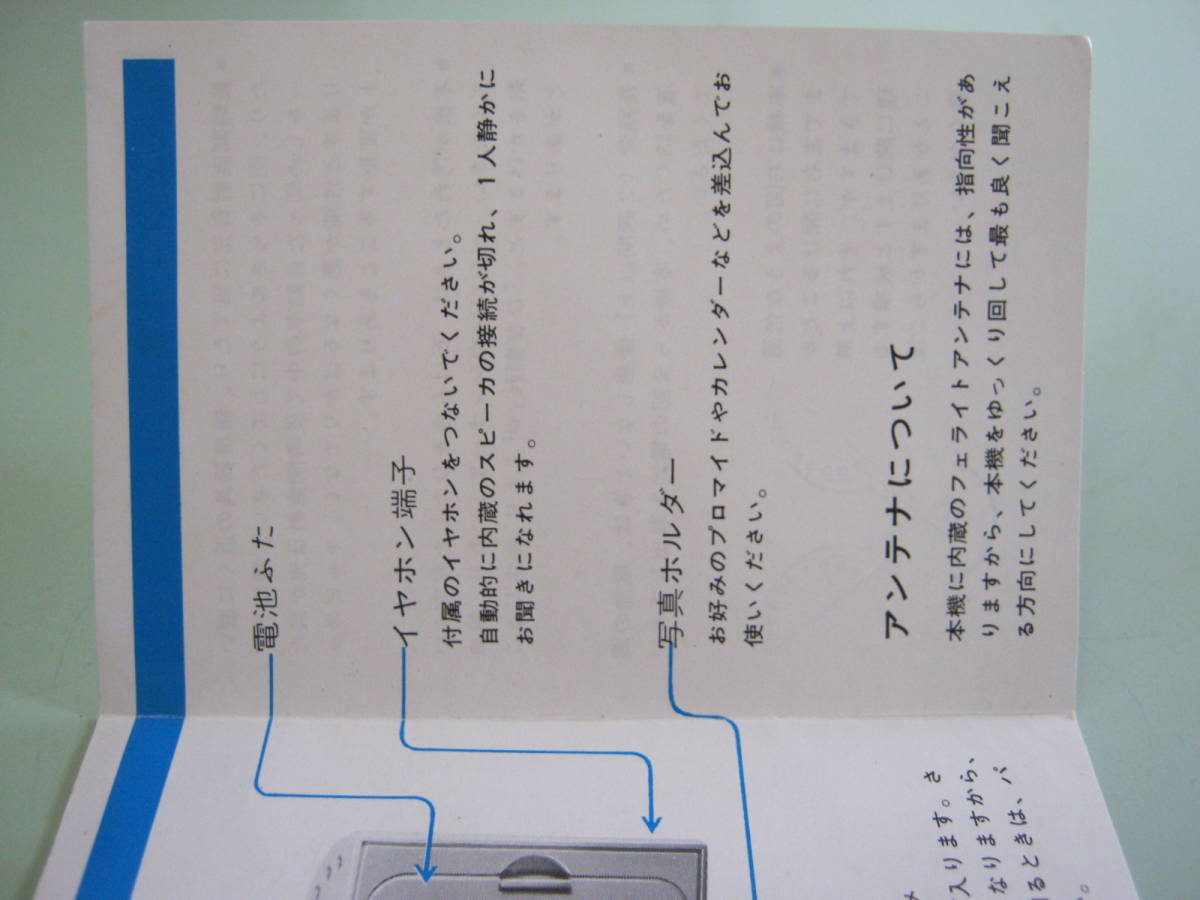 電池ふた
イヤホン端子
付属のイヤホンをつないでください。
自動的に内蔵のスピーカの接続が切れ、1人静かに
お聞きになれます。
写真ホルダー
お好みのプロマイドやカレンダーなどを差込んでお
使いください。
アンテナについて
本機に内蔵のフェライトアンテナには、指向性があ
りますから、本機をゆっくり回して最も良く聞こえ
る方向にしてください。
入ります。さ
なりますから、
るときは、パ